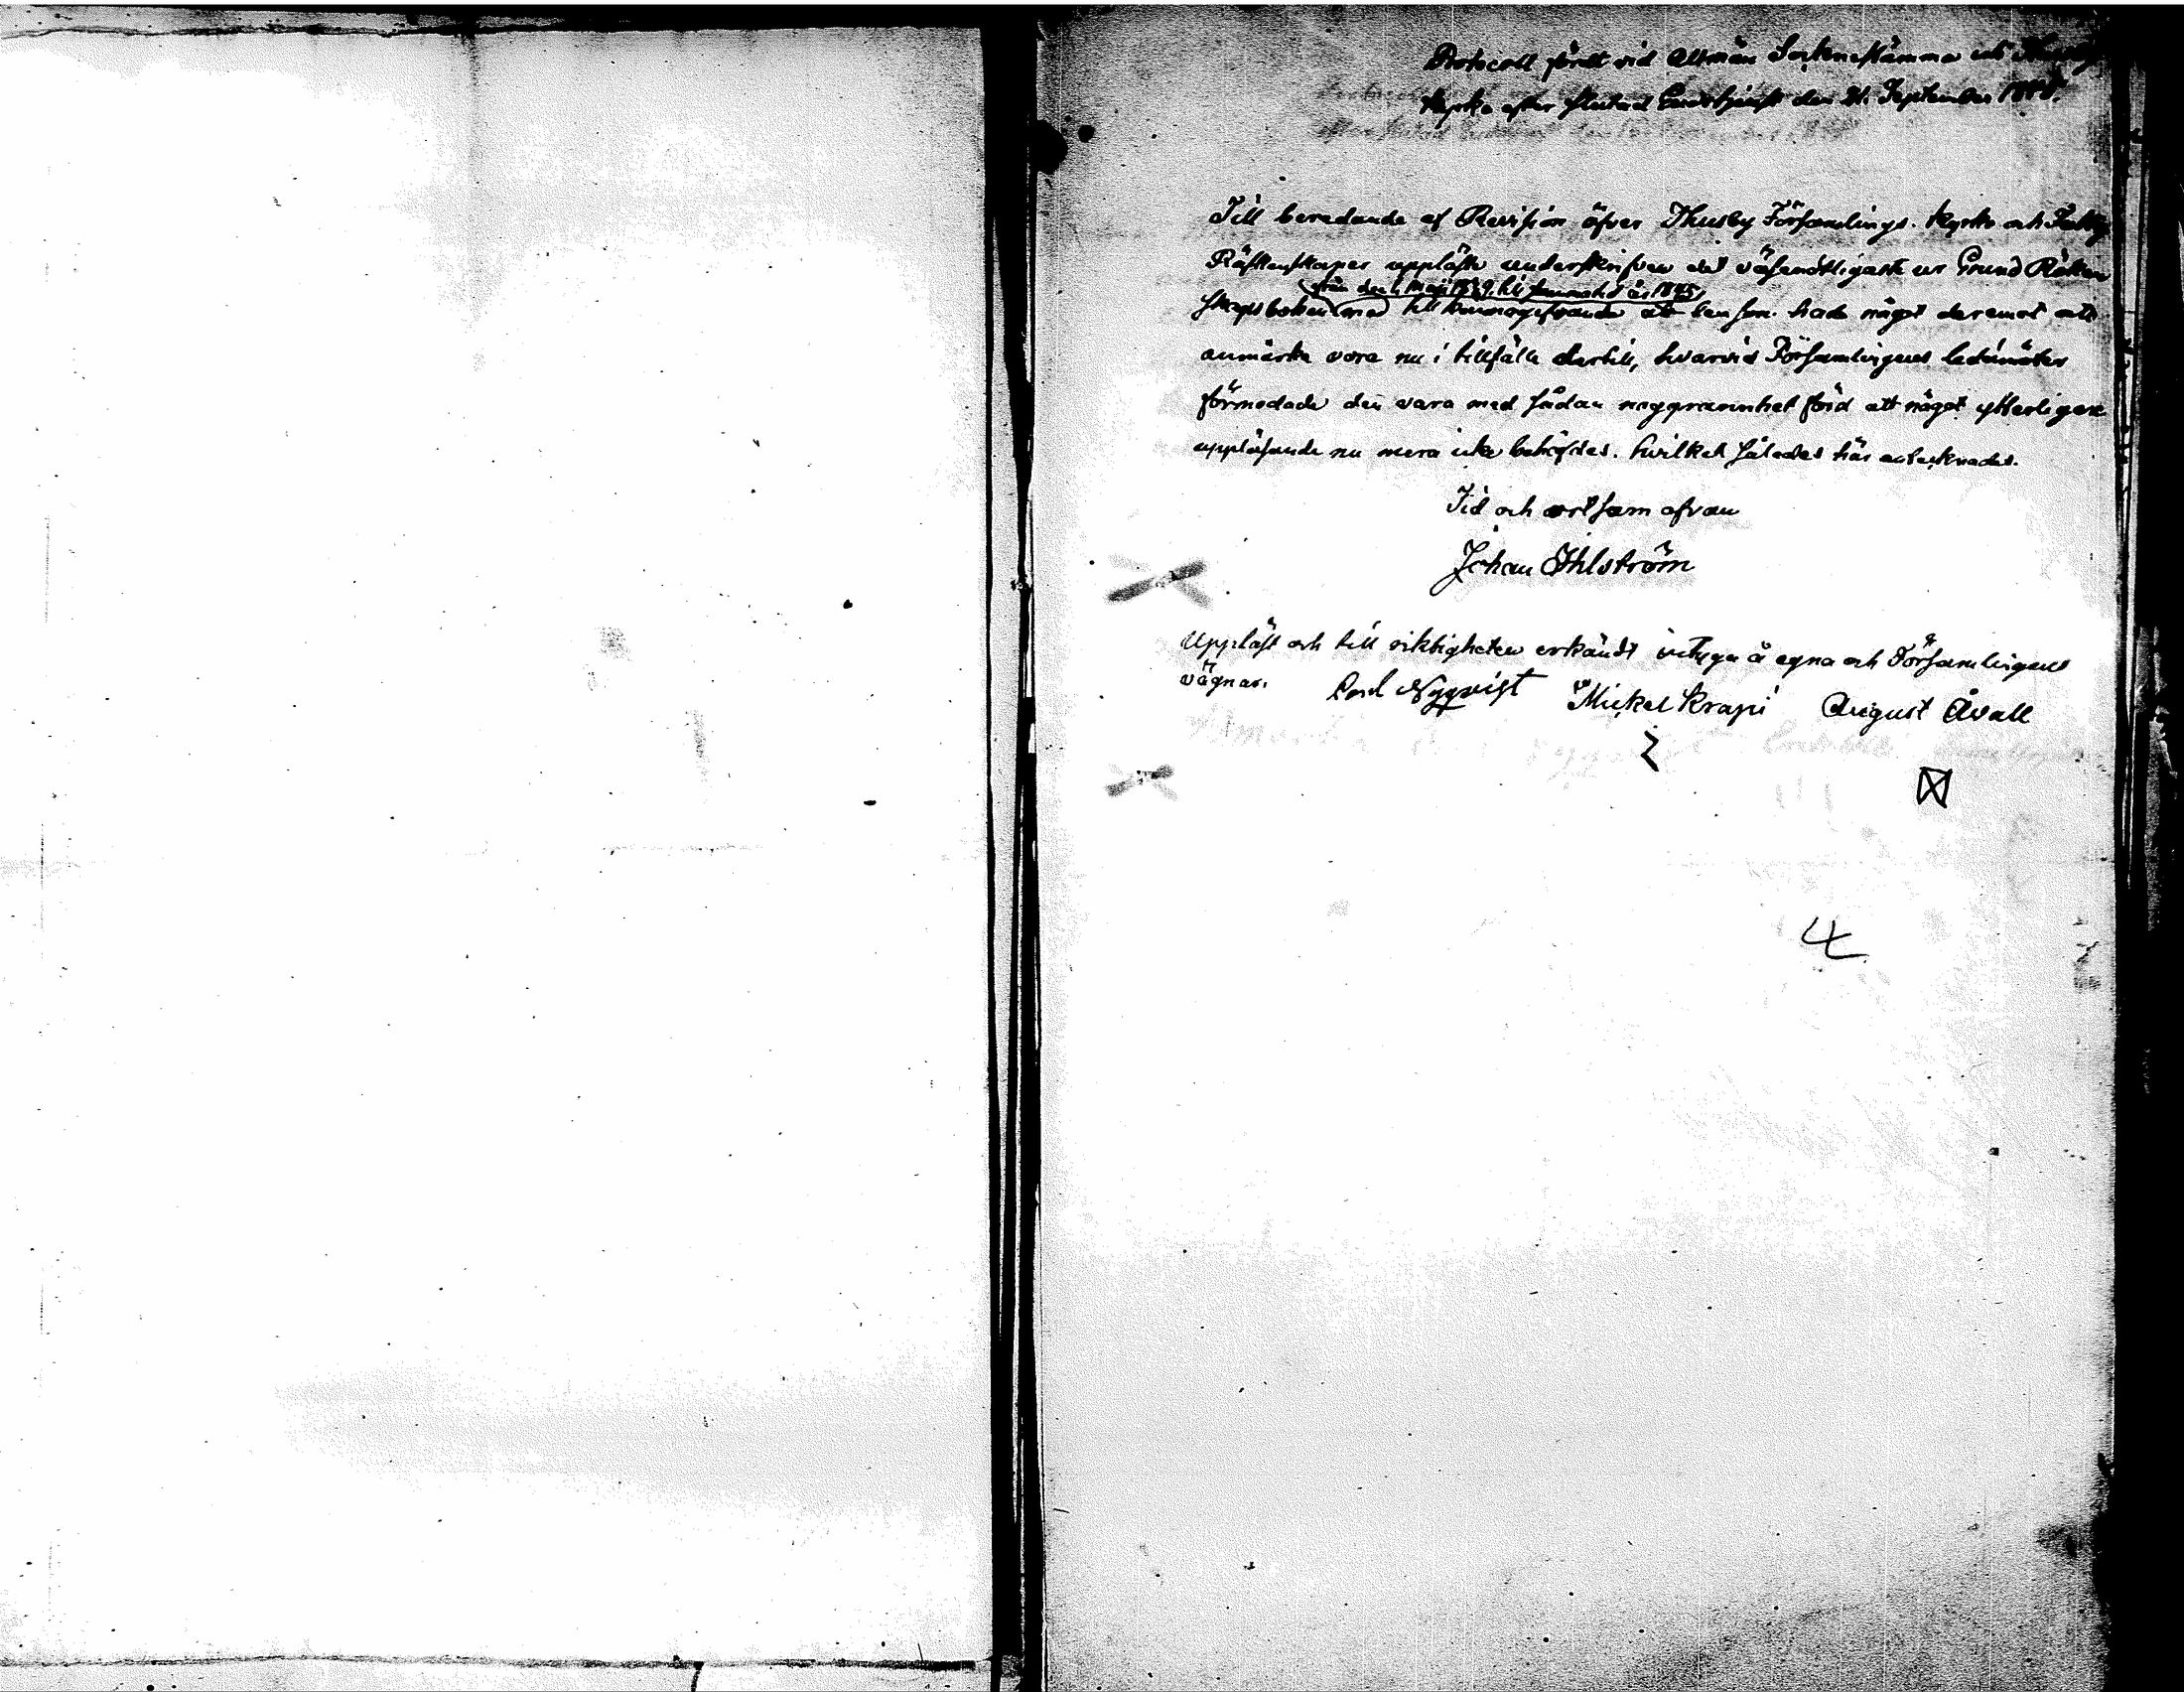 Protocoll fördt vid Allmän Sockenestämma uti Thusby
kyrka efter slutad Gudstjenst den 21. September
Till beredande af Revision öfver Thusby Församlings kyrko och Fattig
Räkenskaper uppläste underskrifven det väsendtligaste ur Grund Räken
från den 1 Maji till samma tid år 1845
skapsboken med tillkännagifvande att den som hade något deremot att
anmärka vore nu i tillfälle dertill, hvarvid Församlingens ledamöter
förmodade den vara med sådan noggrannhet förd att något ytterligare
uppläsande nu mera icke behöfdes. hvilket således här antecknades.
Tid och ort som ofvan
Johan Ahlström
Uppläst och till riktigheten erkändt intyga å egna och Församlingens
vägnar. Carl Nyqvist Mickel Krapi August Åvall
4